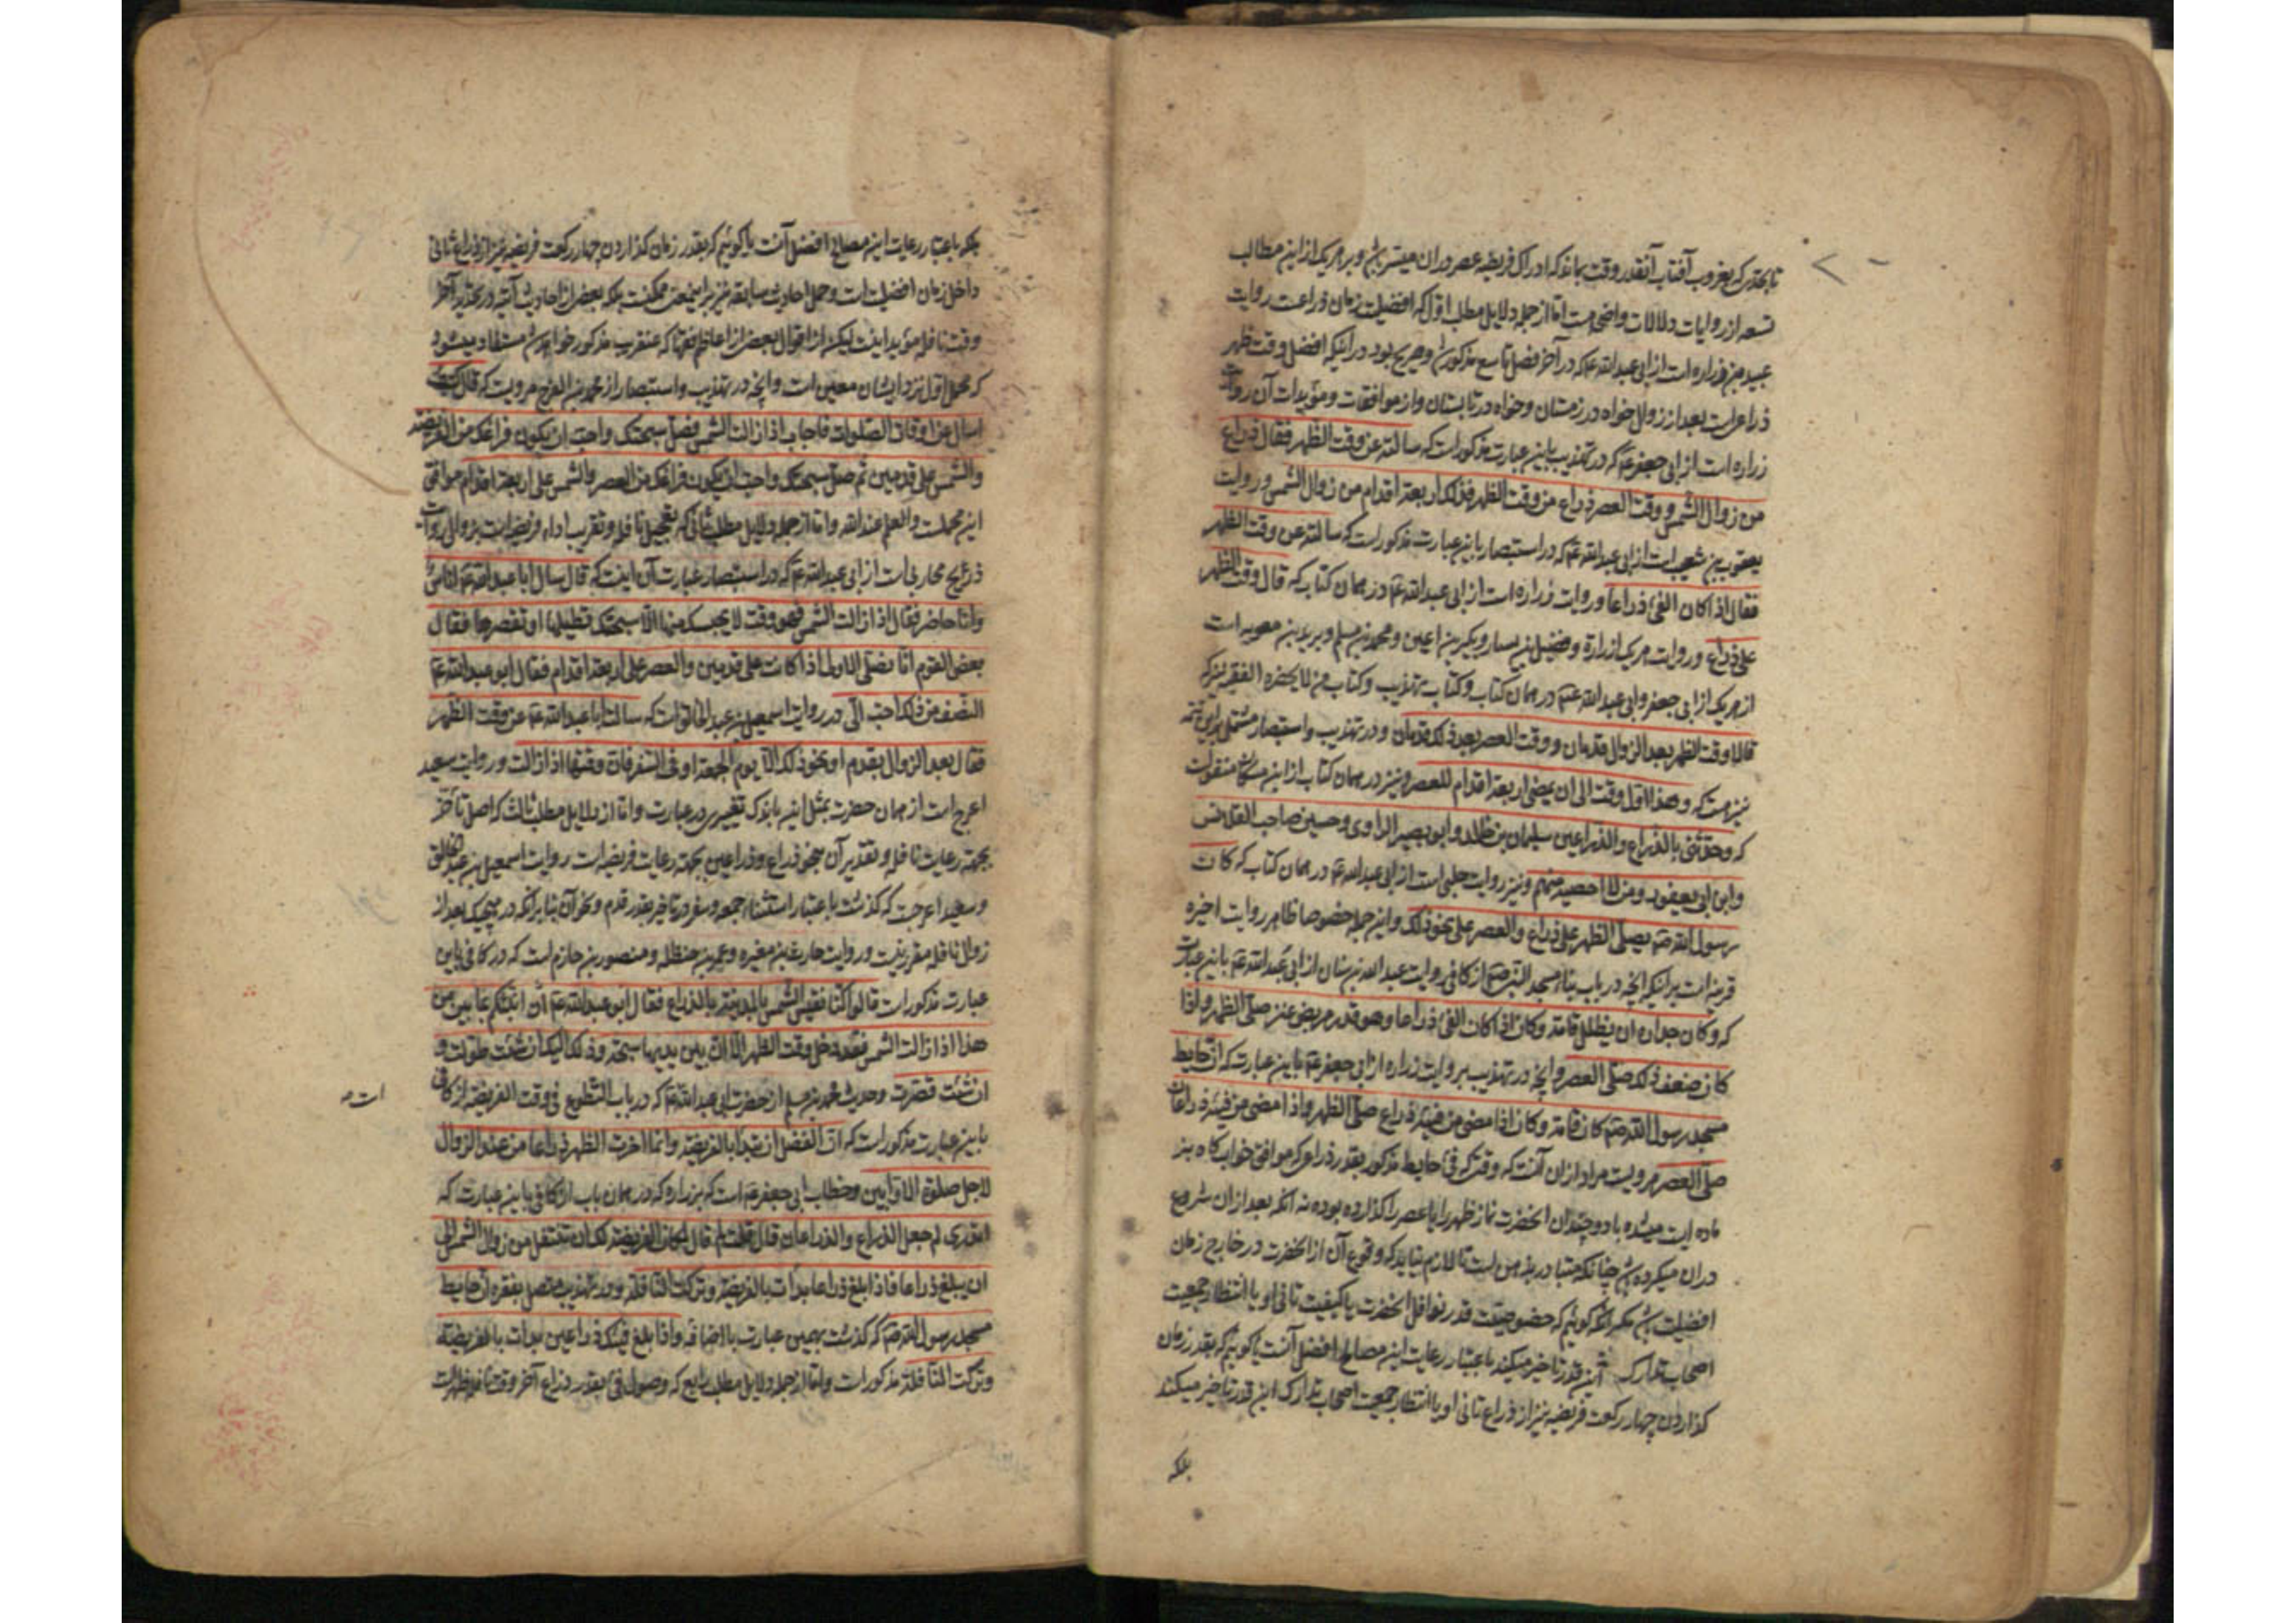 تا بحدی که بغروب آفتاب آنقدر وقت بماند که ادراک فریضه عصر در ان میسر باشد و بر هریک از این مطالب
تسعه از روایات دلالات واضحه هست اما از جمله دلایل مطلب اول که افضلیت زمان ذراعست روایت
عبید بن زراره است از ابی عبد الله ع که در آخر فصل تاسع مذکور شد و صریح بود در اینکه افضل وقت ظهر
ذراعیست بعد از زوال خواه در زمستان و خواه در تابستان و از موافقات و مؤیدات آن روایت
زراره است از ابی جعفر ع که در تهذیب باین عبارت مذکور است که سالته عن وقت الظهر فقال ذراع
من زوال الشمس و وقت العصر ذراع من وقت الظهر فذلک اربعة اقدام من زوال الشمس و روایت
یعقوب بن شعیب است از ابی عبد الله ع که در استبصار باین عبارت مذکور است که سالته عن وقت الظهر
فقال اذا کان الفئ ذراعا و روایت زراره است از ابی عبد الله ع در همان کتاب که قال وقت الظهر
علی ذراع و روایت هریک از زرارة و فضیل بن یسار و بکیر بن اعین و محمد بن مسلم و برید بن معویه است
از هریک از ابی جعفر و ابی عبد الله ع در همان کتاب و کتاب تهذیب و کتاب من لا یحضره الفقیه نیز که
قالا وقت الظهر بعد الزوال قدمان و وقت العصر بعد ذلک قدمان و در تهذیب و استبصار مشتمل بر این تتمه
نیز هست که و هذا اول وقت الی ان یمضی اربعة اقدام للعصر و نیز در همان کتاب از ابن مسکان منقولست
که و حدثنی بالذراع و الذراعین سلیمان بن خالد و ابو بصیر المرادی و حسین صاحب القلانس
و ابن ابی یعفور و من لا احصیه منهم و نیز روایت حلبی است از ابی عبد الله ع در همان کتاب که کان
رسول الله ص یصلی الظهر علی ذراع و العصر علی نحو ذلک و این جمله خصوصا ظاهر روایت اخیره
قرینه است بر اینکه انچه در باب بناء مسجد النبی ص از کافی روایت عبد الله بن سنان از ابی عبد الله ع باین عبارت
که و کان جداره ان یظلل قامة و کان اذا کان الفئ ذراعا و هو قدر مربض عنز صلی الظهر و اذا
کان ضعف ذلک صلی العصر و انچه در تهذیب بروایت زراره از ابی جعفر ع باین عبارت که ان حایط
مسجد رسول الله ص کان قامة و کان اذا مضی من فیئه ذراع صلی الظهر و اذا مضی من فیئه ذراعان
صلی العصر مرویست مراد از ان آنست که وقتی که فئ حایط مذکور بقدر ذراع که موافق خوابکاه بز
ماده ایست میشده یا دو چندان انحضرت نماز ظهر را یا عصر را کذارده بوده نه انکه بعد از ان شروع
در ان میکرده باشد چنانکه متبادر بذهن است تا لازم نیاید که وقوع آن از انحضرت در خارج زمان
افضلیت باشد مکر انکه کوئیم که خصوصیت قدر نوافل انحضرت یا کیفیت تانی او یا انتظار جمعیت
اصحاب تدارک این قدر تاخیر میکند یا عتبار رعایت این مصالح افضل آنست یا کوئیم که بقدر زمان
کذاردن چهار رکعت فریضه نیز از ذراع ثانی او یا انتظار جمعیت اصحاب تدارک این قدر تاخیر میکند
بلکه
بلکه باعتبار رعایت این مصالح افضل آنست یا کوئیم که بقدر زمان کذاردن چهار رکعت فریضه نیز از ذراع ثانی
داخل زمان افضلیت است و حمل احادیث سابقه نیز بر این معنی ممکنست بلکه بعضی از احادیث آتیه در تحدید آخر
وقت نافله مؤید اینست لیکن از اقوال بعضی از اعاظم فقها که عنقریب مذکور خواهد شد مستفاد میشود
که محمل اول نزد ایشان معین است و انچه در تهذیب و استبصار از محمد بن الفرج مرویست که قال کتبت
اسال عن اوقات الصلوات فاجاب اذا زالت الشمس فصل سبحتک و احب ان یکون فراغک من الفریضة
والشمس علی قدمین ثم صل سبحتک و احب ان یکون فراغک من العصر والشمس علی اربعة اقدام موافق
این محملست و العلم عند الله و اما از جمله دلایل مطلب ثانی که تعجیل نافله و تقریب اداء فریضه است بزوال روایت
ذریح محاربی است از ابی عبد الله ع که در استبصار عبارت آن اینست که قال سال ابا عبد الله ع اناس
و انا حاضر فقال اذا زالت الشمس فهو وقت لا یحبسک منها الا سبحتک تطیلها او تقصرها فقال
بعض القوم انا نصلی الاولی اذا کانت علی قدمین والعصر علی اربعة اقدام فقال ابو عبد الله ع
النصف من ذلک احب الی و روایت اسمعیل بن عبد الخالق است که سالت ابا عبد الله ع عن وقت الظهر
فقال بعد الزوال بقدم او نحو ذلک الا یوم الجمعة او فی السفر فان وقتها اذا زالت و روایت سعید
اعرج است از همان حضرت بمثل این باندک تغییری در عبارت و اما از دلایل مطلب ثالث که اصل تاخر
بجهة رعایت نافله و تقدیر آن بنحو ذراع و ذراعین بجهة رعایت فریضه است روایت اسمعیل بن عبد الخالق
و سعید اعرجست که کذشت باعتبار استثناء جمعه و سفر در تاخیر بقدر قدم و نحو آن بنا بر انکه در هیچیک بعد از
زوال نافله مقرر نیست و روایت حارث بن مغیره و عمر بن حنظله و منصور بن حازم است که در کافی باین
عبارت مذکور است قالوا کنا نقیس الشمس بالمدینة بالذراع فقال ابو عبد الله ع الا انبئکم بابین من
هذا اذا زالت الشمس فقد دخل وقت الظهر الا ان بین یدیها سبحة و ذلک الیک ان شئت طولت و
ان شئت قصرت و حدیث محمد بن مسلم از حضرت ابی عبد الله ع که در باب التطوع فی وقت الفریضة از کافی
باین عبارت مذکور است که ان الفضل ان تبدا بالفریضة و انما اخرت الظهر ذراعا من عند الزوال
لاجل صلوة الاوابین و خطاب ابی جعفر ع است که بزراره که در همان باب از کافی باین عبارت که
اتدری لم جعل الذراع والذراعان قال قلت لم قال لمکان الفریضة لک ان تتنفل من زوال الشمس الی
ان یبلغ ذراعا فاذا بلغ ذراعا بدات بالفریضة و ترکت النافلة و در تهذیب متصل بفقره ان حایط
مسجد رسول الله ص که کذشت بهمین عبارت باضافه و اذا بلغ فیئک ذراعین بدات بالفریضة
و ترکت النافلة مذکور است و اما از جمله دلایل مطلب رابع که وصول فئ بقدر ذراع آخر وقت نافله ظهر است